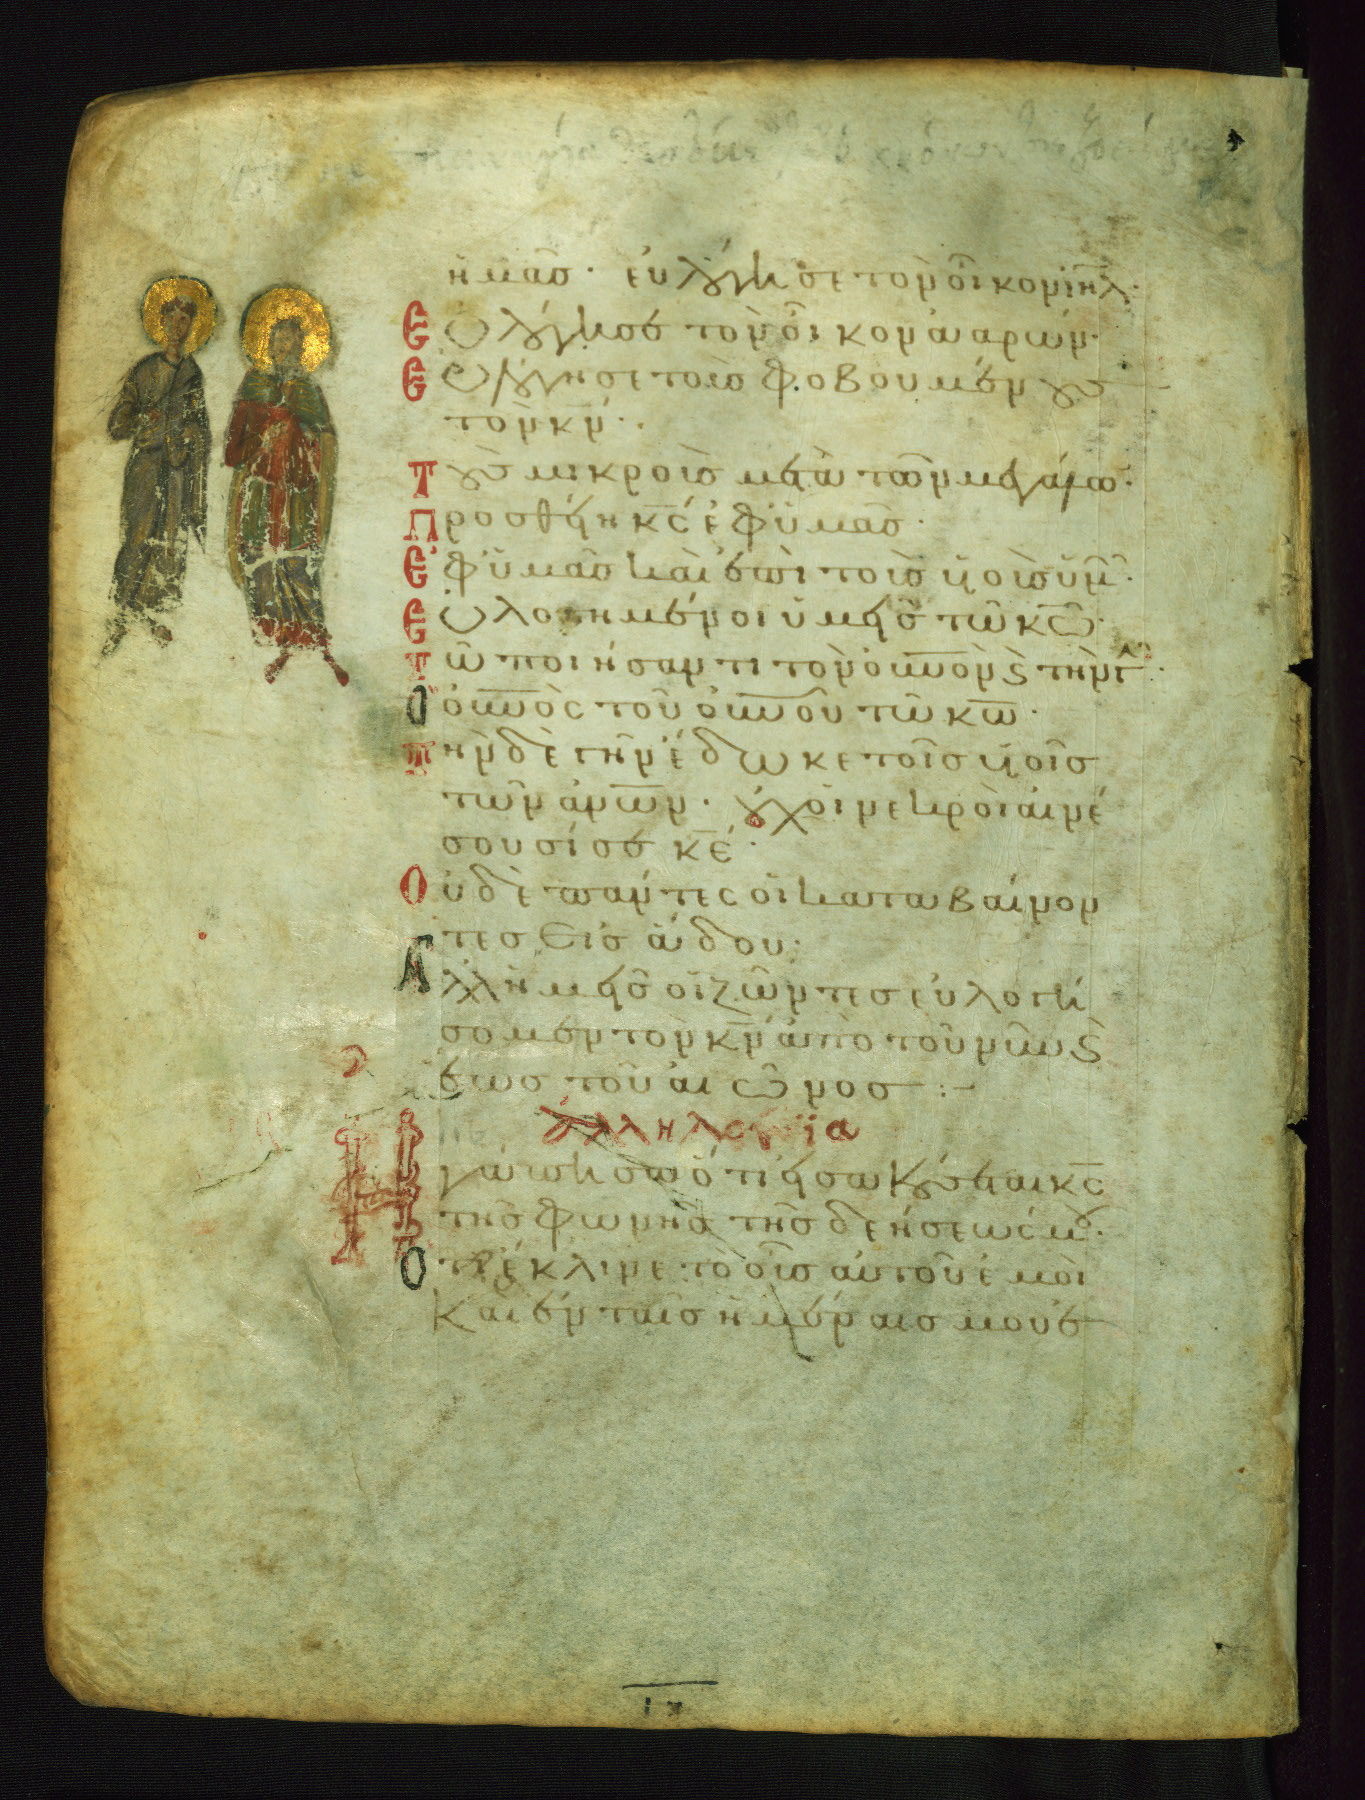 ἡμᾶσ· εὐλόγησε τὸν οἶκον ἰη̅λ·
Εὐλόγησε τὸν οἶκον ἀαρών·
Εὐλόγησε τοὺσ φοβουμένουσ
τὸν κ̅ν̅·
Τοὺσ μικροὺσ μετὰ τῶν μεγάλων·
Προσθείη κ̅ς̅ ἐφ ὑμᾶσ·
Ἐφ ὑμᾶσ καὶ ἐπὶ τοὺσ υἱοὺσ ὑμῶν·
Εὐλογημένοι ὑμεῖσ τῶ κ̅ω̅·
Τῶ ποιήσαντι τὸν ο̅υ̅νὸν ϛ τὴν γῆν·
Ὁ ο̅υ̅νὸς τοῦ ο̅υ̅νοῦ τῶ κ̅ω̅·
Τὴν δὲ γῆν ἔδωκε τοῖσ υἱοῖσ
τῶν α̅ν̅ω̅ν· οὐχ οἱ νεκροὶ αἰνέ
σουσί σε κ̅ε̅·
Οὐδὲ πάντες οἱ καταβαίνον
τεσ εἰσ ἅδου·
Ἀλλ ἡμεῖσ οἱ ζῶντεσ εὐλογή
σομεν τὸν κ̅ν̅ ἀπὸ τοῦ νῦν ϛ
ἕωσ τοῦ αἰῶνοσ :–
ἀλληλούϊα
Ἠγάπησα ὅτι εἰσακούσεται κ̅ς̅
τῆσ φωνῆσ τῆσ δεήσεώς μου·
Ὅτι ἔκλινε τὸ οὖσ αὐτοῦ ἐμοὶ
καὶ ἐν ταῖσ ἡμέραισ μου ἐ